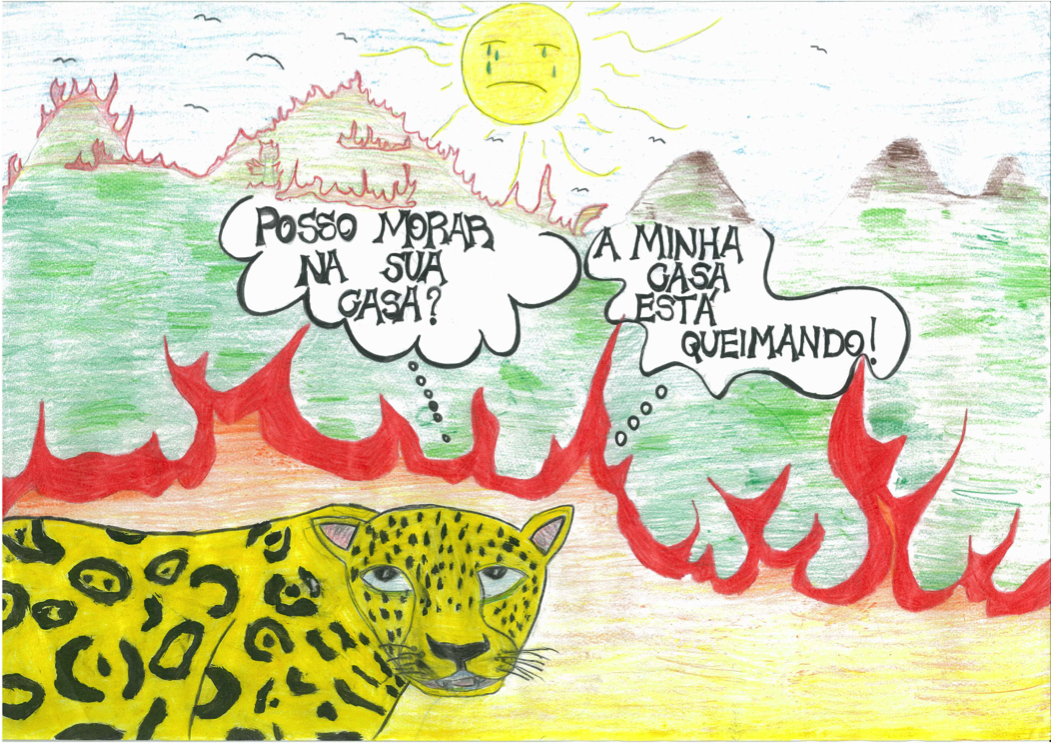 POSSO MORAR
NA SUA
CASA?
A MINHA
CASA
ESTÁ
QUEIMANDO!